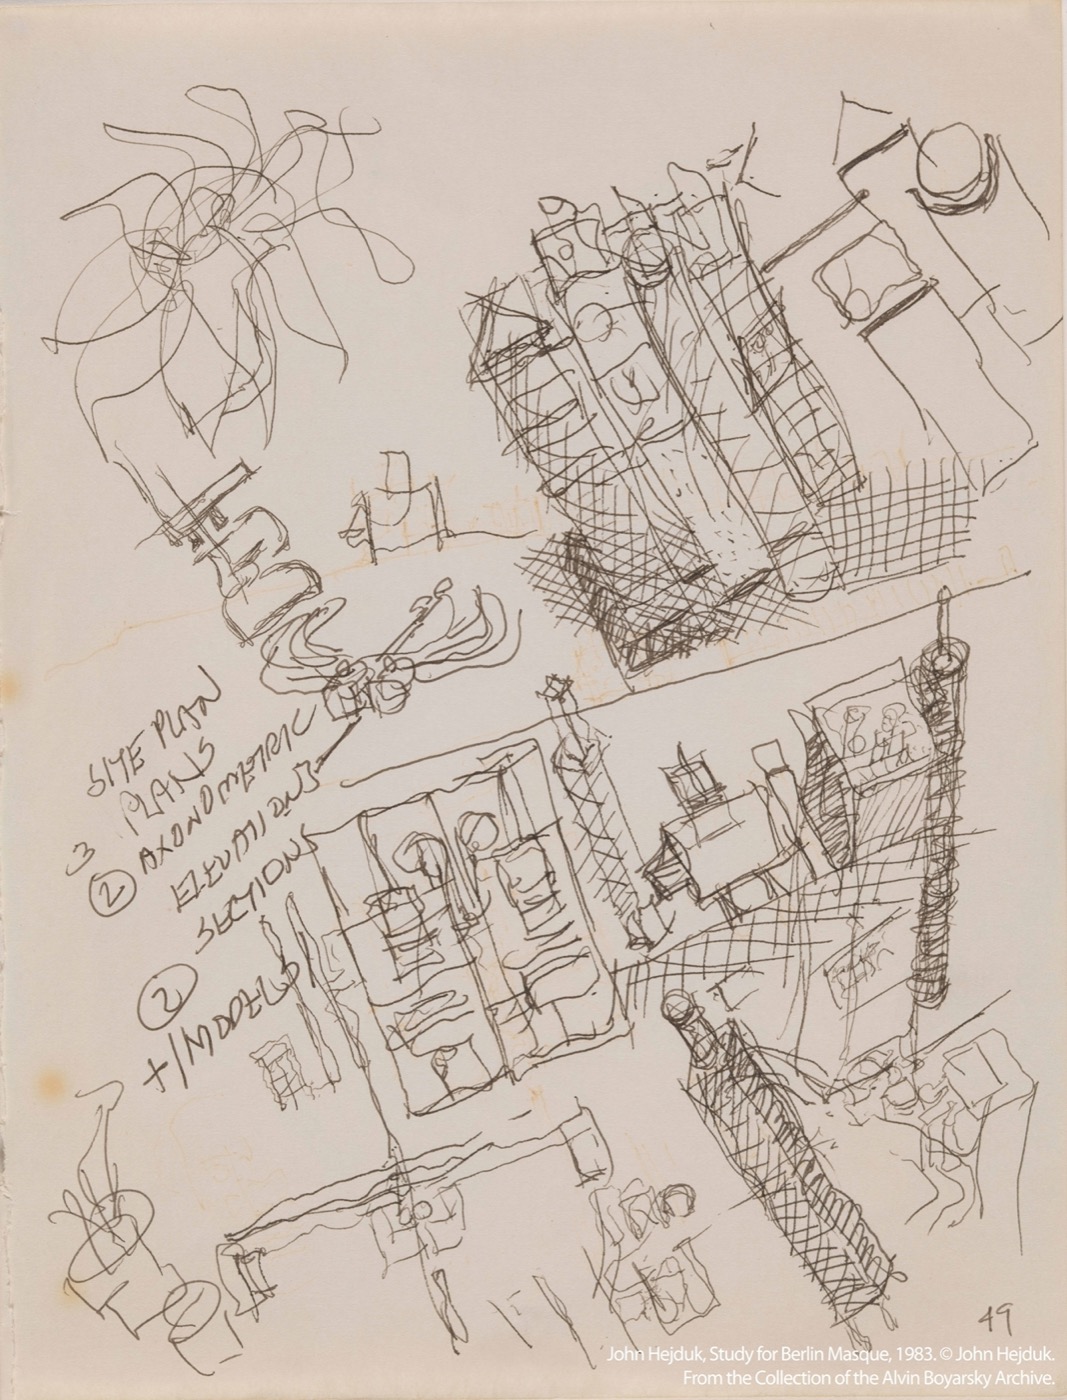 SITE PLAN
PLANS
3
② AXONOMETRIC
ELEVATIONS
SECTIONS
②
+/MODELS
49
John Hejduk, Study for Berlin Masque, 1983. © John Hejduk.
From the Collection of the Alvin Boyarsky Archive.